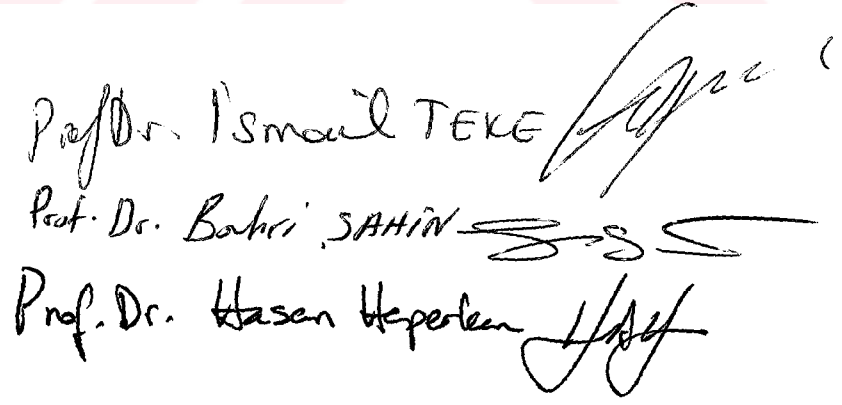 Prof Dr. İsmail TEKE
Prof. Dr. Bahri ŞAHİN
Prof. Dr. Hasan Heperkan